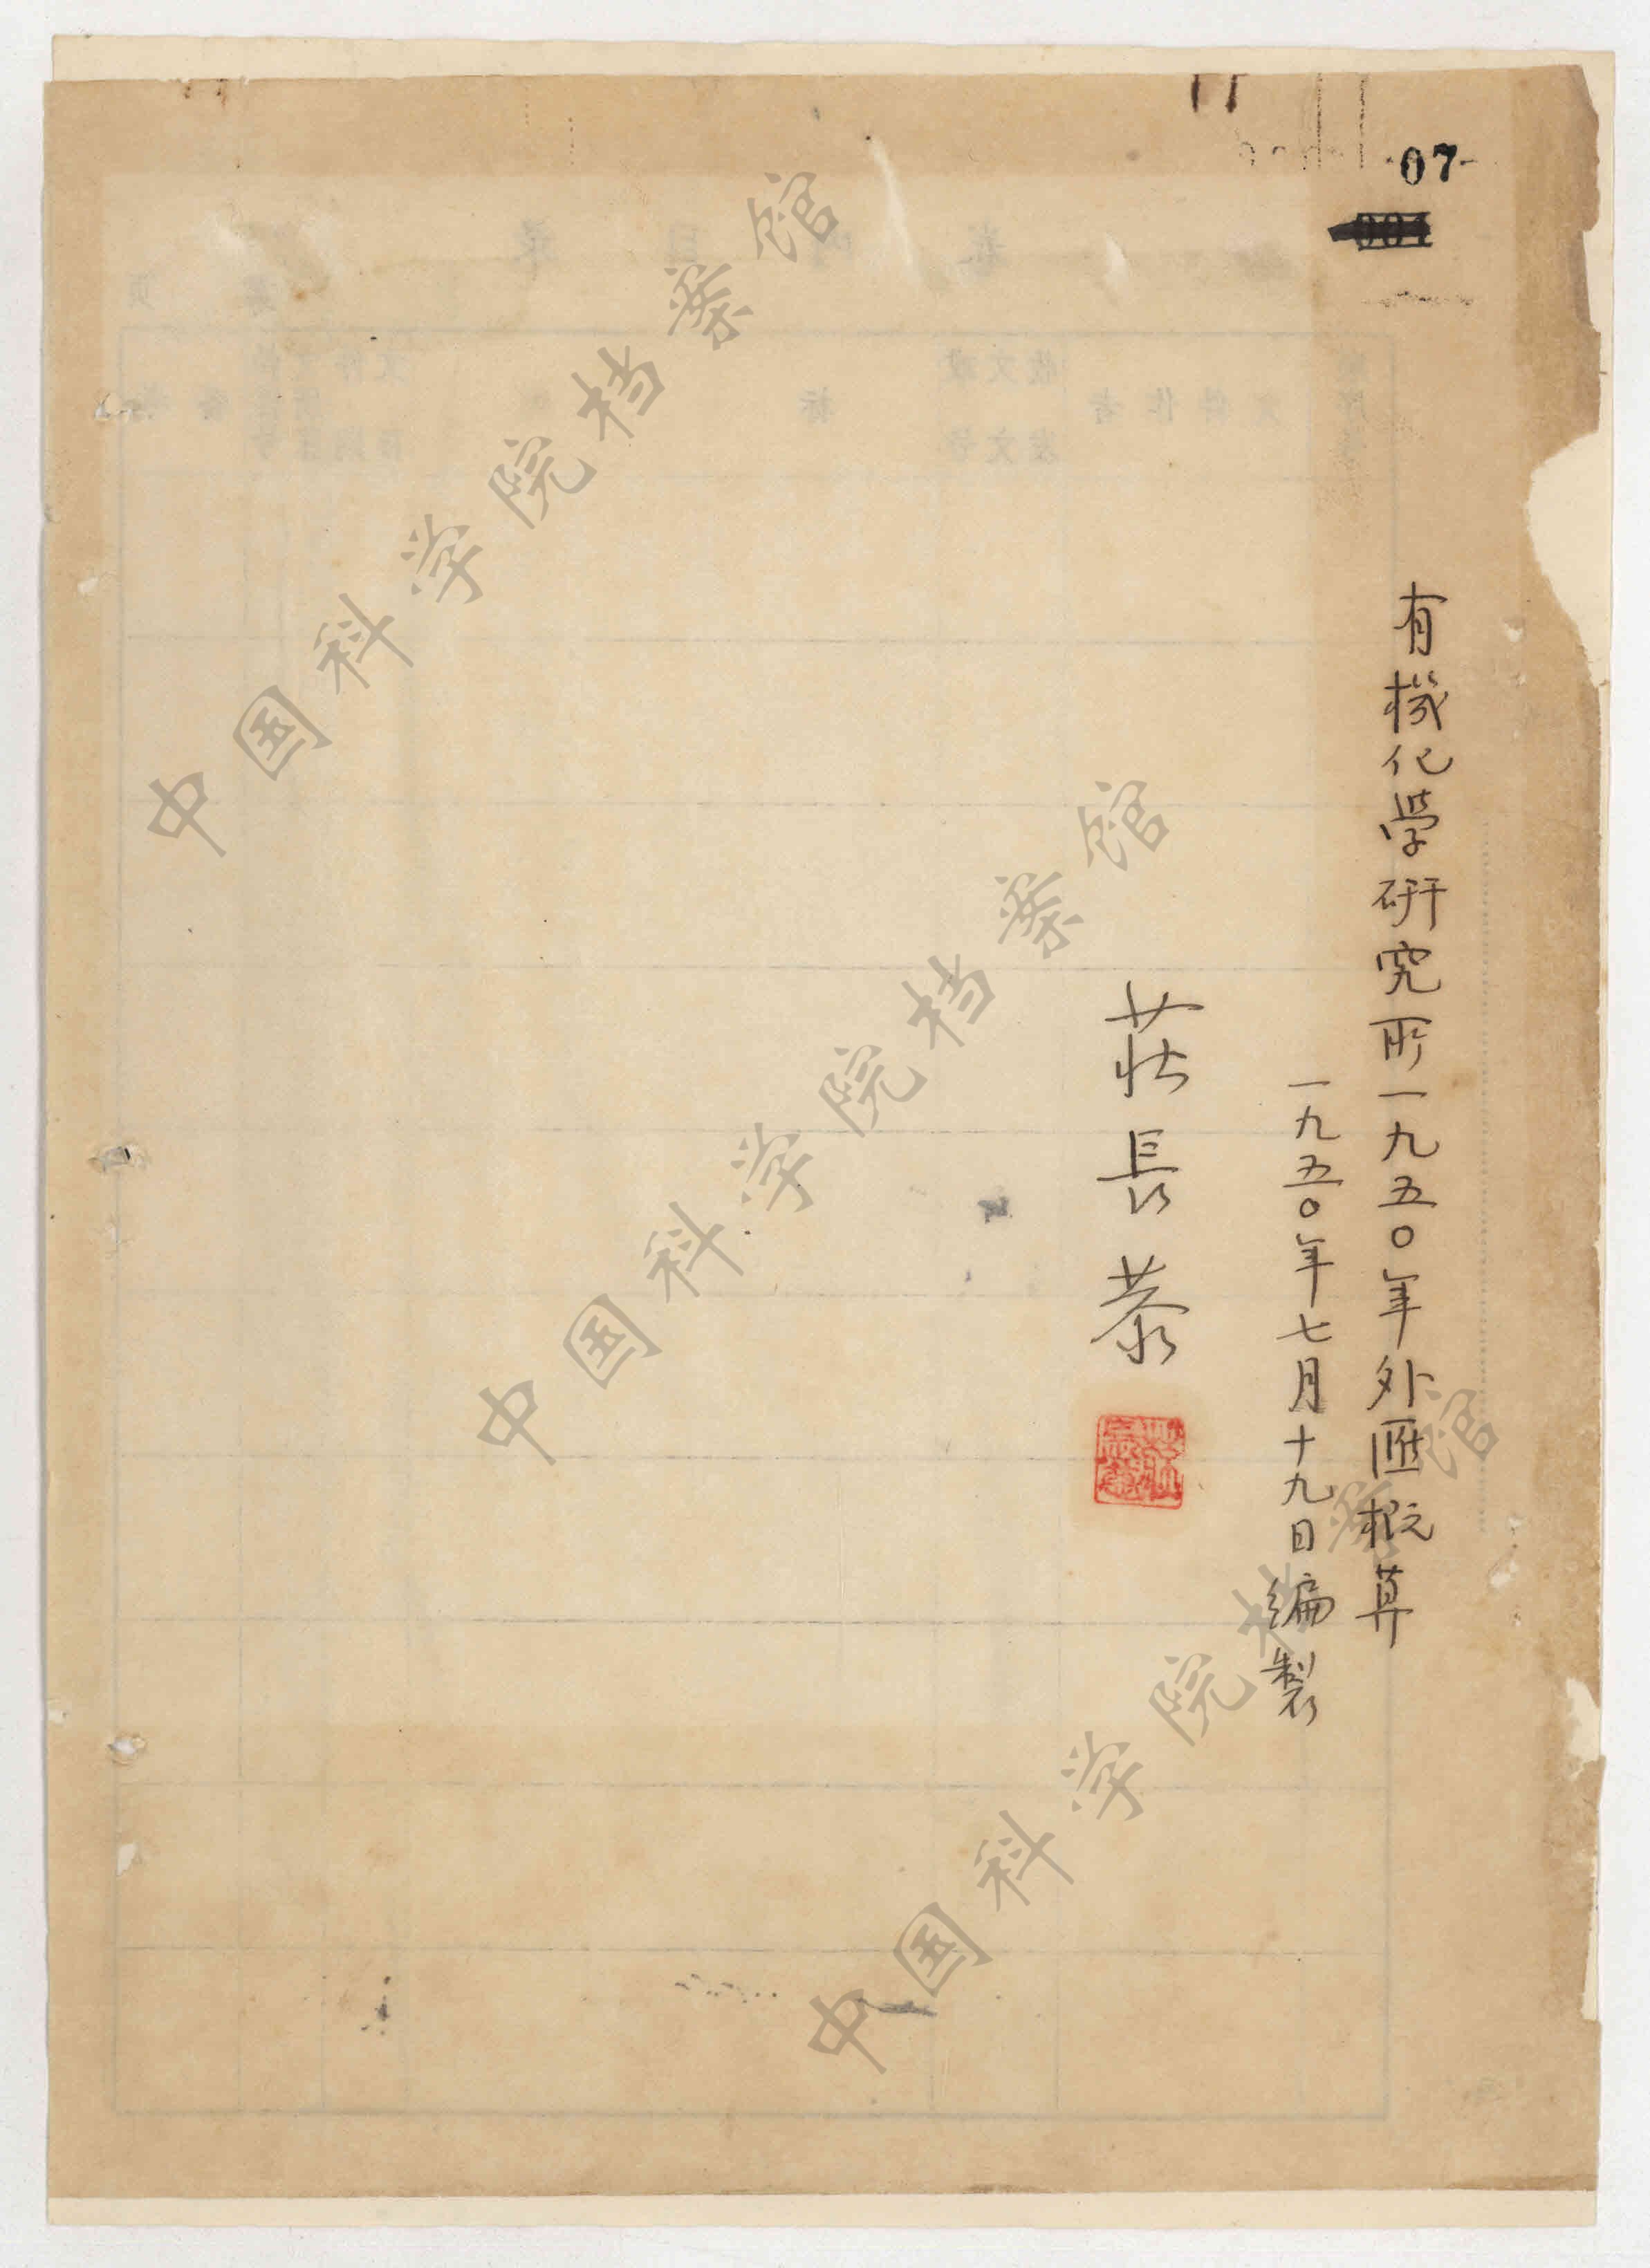 07
有機化學研究所一九五〇年外匯概算
一九五〇年七月十九日編製
莊長恭
中国科学院档案馆
中国科学院档案馆
中国科学院档案馆